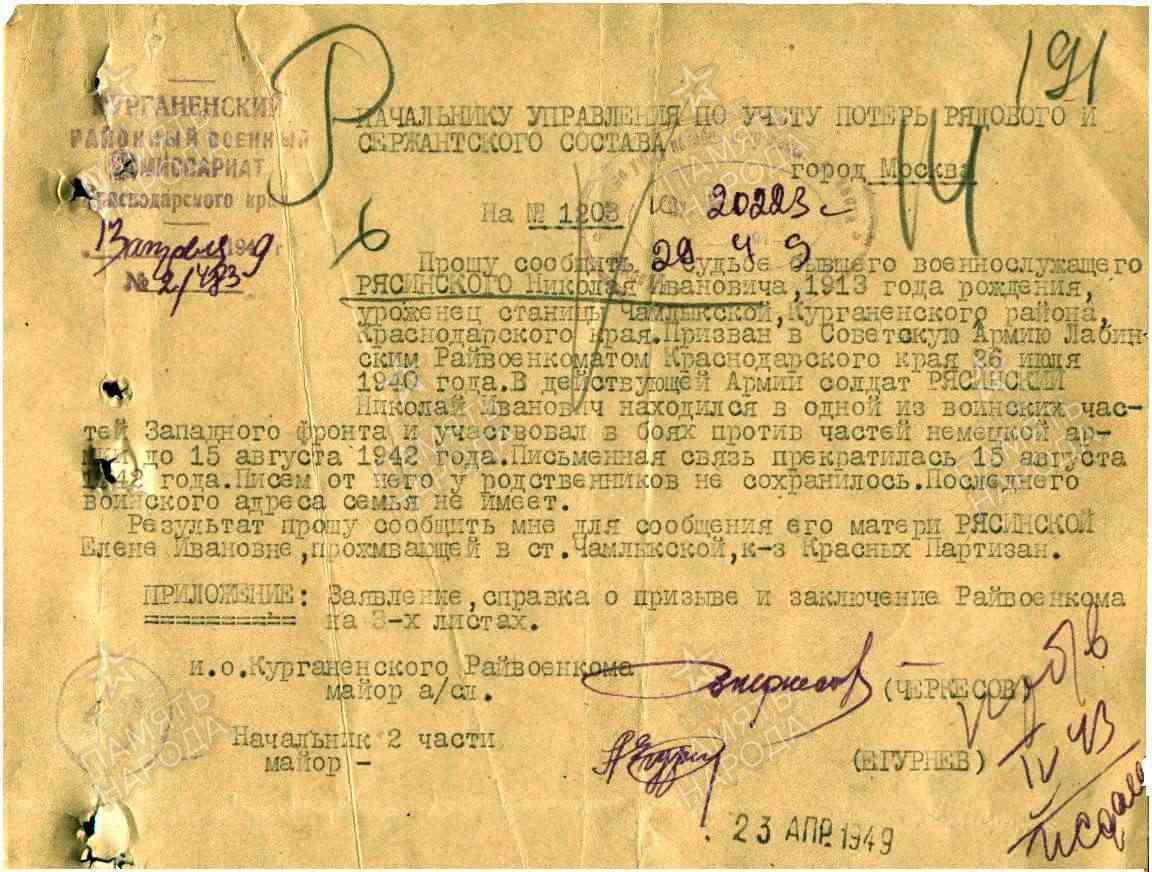 191
Р
КУРГАНЕНСКИЙ
РАЙОННЫЙ ВОЕННЫЙ
КОМИССАРИАТ
Краснодарского края
13 апреля 1949 г
№ 2/483
НАЧАЛЬНИКУ УПРАВЛЕНИЯ ПО УЧЕТУ ПОТЕРЬ РЯДОВОГО И
СЕРЖАНТСКОГО СОСТАВА
город Москва
На № 1203
20223
29 4 9
Прошу сообщить судьбе бывшего военнослужащего
РЯСИНСКОГО Николая Ивановича, 1913 года рождения,
уроженец станицы Чамлыкской, Курганенского района,
Краснодарского края. Призван в Советскую Армию Лабин-
ским Райвоенкоматом Краснодарского края 26 июля
1940 года. В действующей Армии солдат РЯСИНСКИЙ
Николай Иванович находился в одной из воинских час-
тей Западного фронта и участвовал в боях против частей немецкой ар-
мии до 15 августа 1942 года. Письменная связь прекратилась 15 августа
1942 года. Писем от него у родственников не сохранилось. Последнего
воинского адреса семья не имеет.
Результат прошу сообщить мне для сообщения его матери РЯСИНСКОЙ
Елене Ивановне, прохмвающей в ст. Чамлыкской, к-з Красных Партизан.
ПРИЛОЖЕНИЕ: Заявление, справка о призыве и заключение Райвоенкома
==========
на 3-х листах.
и.о. Курганенского Райвоенкома
майор а/сл.
(ЧЕРКЕСОВ)
Начальник 2 части
майор -
(ЕГУРНЕВ)
IV 43
23 АПР 1949
ПАМЯТЬ НАРОДА